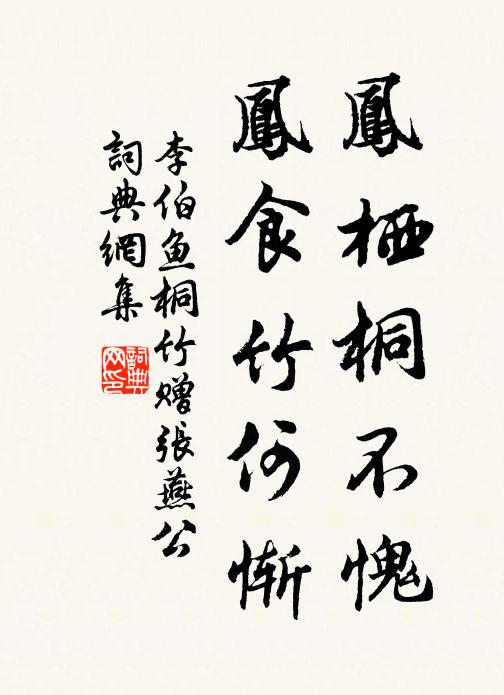 鳳栖桐不愧
鳳食竹何慚
李伯鱼桐竹赠張燕公
詞典網集
詞典网印